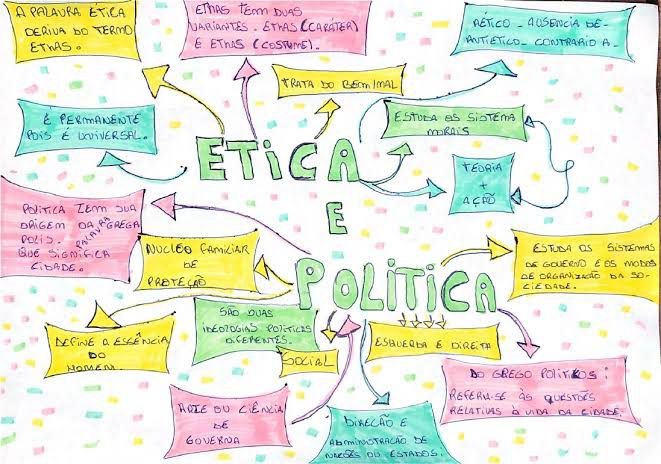 A PALAVRA ETICA
DERIVA DO TERMO
ETHOS.
ETHOS TEM DUAS
VARIANTES. ETHOS (CARÁTER)
E ETHOS (COSTUME).
AÉTICO - AUSENCIA DE-
ANTIÉTICO - CONTRARIO A -
TRATA DO BEM/MAL
É PERMANENTE
POIS É UNIVERSAL.
ESTUDA OS SISTEMA
MORAIS
ETICA
TEORIA
+
AÇÃO
E
POLITICA TEM SUA
ORIGEM DA PALAVRA GREGA
POLIS.
QUE SIGNIFICA
CIDADE.
NUCLEO FAMILIAR
DE
PROTEÇÃO
ESTUDA OS SISTEMAS
DE GOVERNO E OS MODOS
DE ORGANIZAÇÃO DA SO-
CIEDADE.
POLÍTICA
SÃO DUAS
IDEOLOGIAS POLITICAS
DIFERENTES.
DEFINE A ESSÊNCIA
DO
HOMEM.
SOCIAL
ESQUERDA E DIREITA
DO GREGO POLITIKOS:
REFERE-SE ÀS QUESTÕES
RELATIVAS À VIDA DA CIDADE.
ARTE OU CIÊNCIA
DE
GOVERNA
DIREÇÃO E
ADMINISTRAÇÃO DE
NAÇÕES OU ESTADOS.